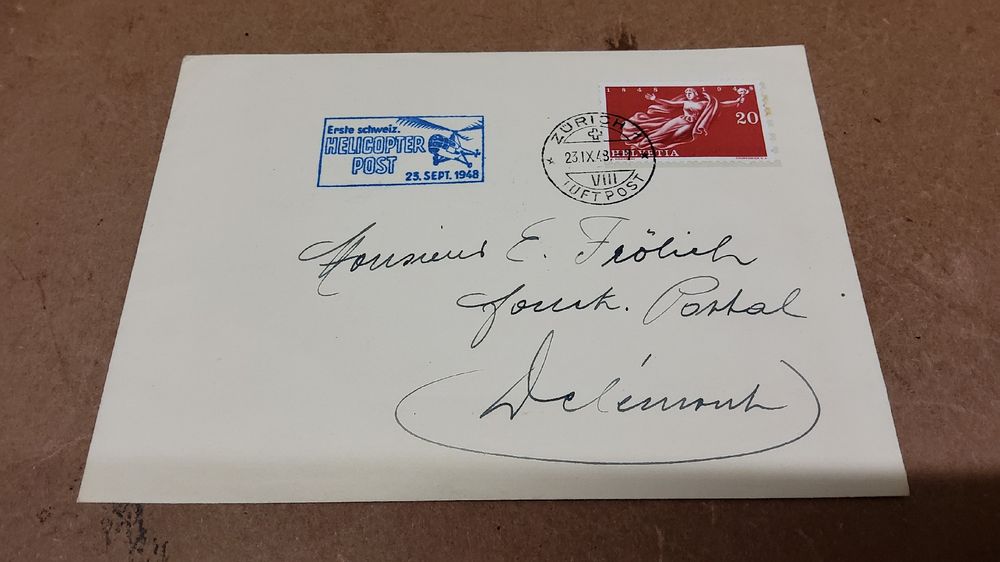 1848 1948
20
HELVETIA
Erste schweiz.
HELICOPTER
POST
23. SEPT. 1948
ZÜRICH
23.IX.48
VIII
LUFTPOST
Monsieur E. Frölich
fonct. Postal
Delémont